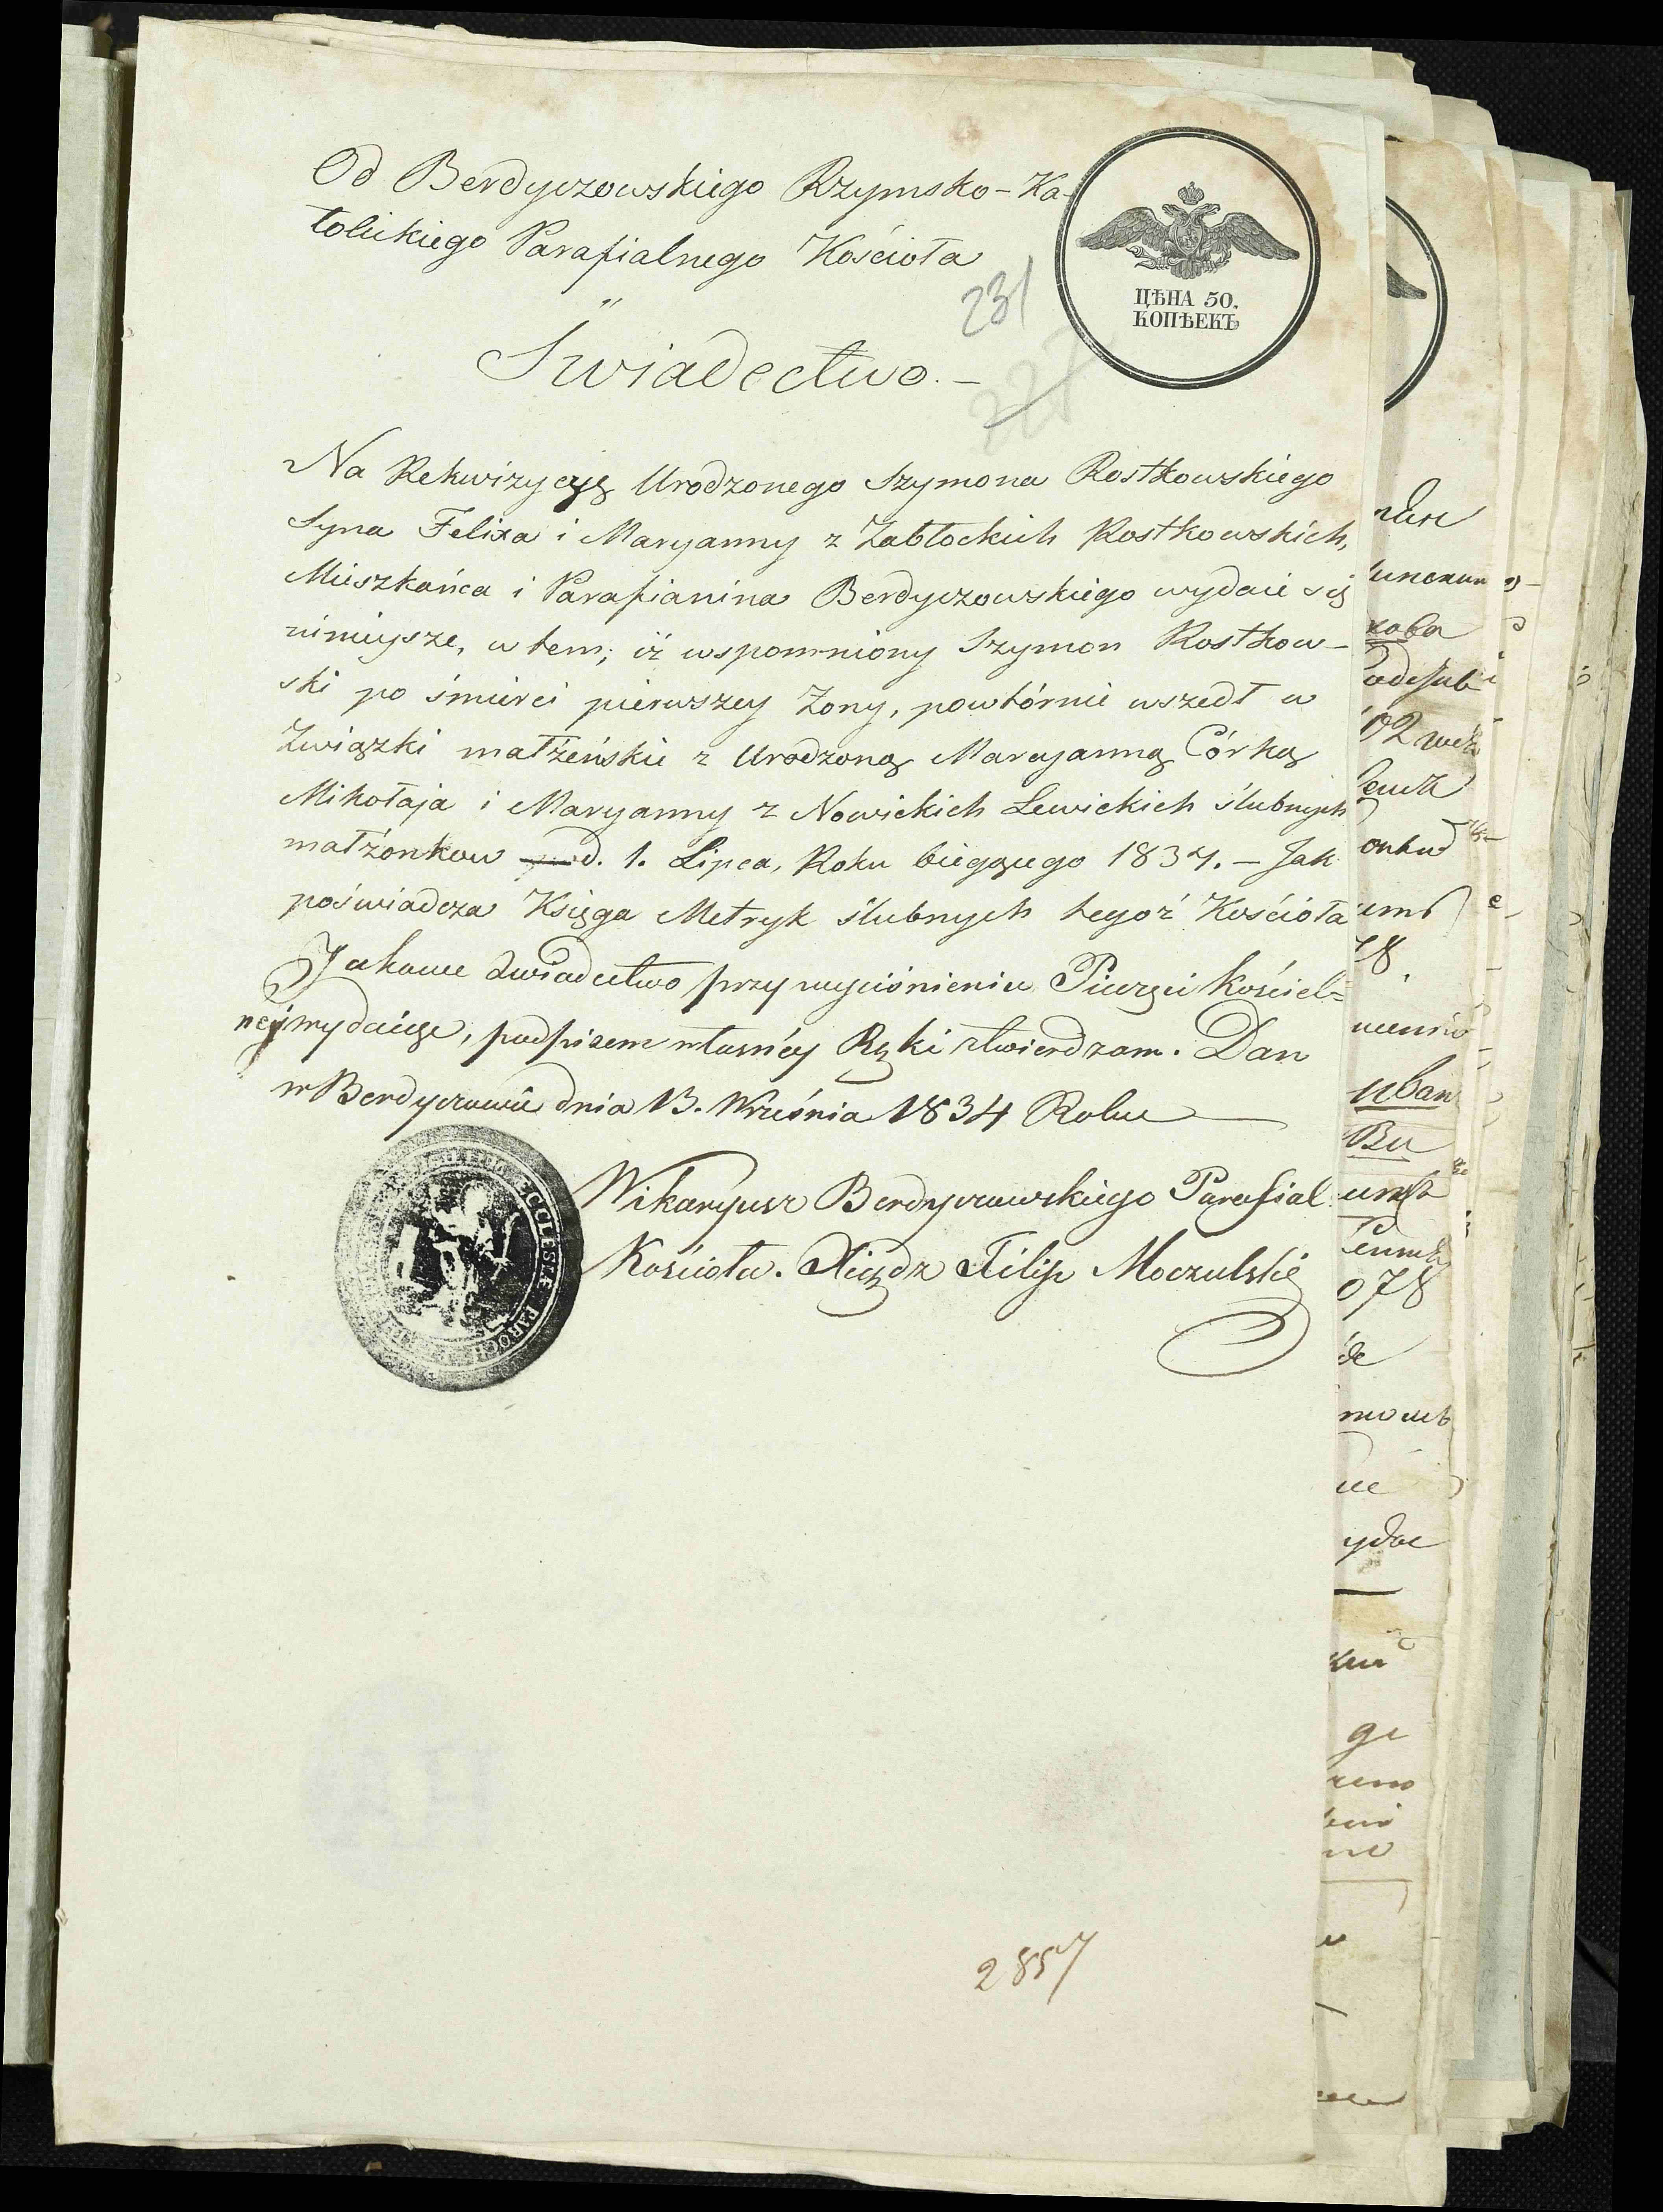 Od Berdyczowskiego Rzymsko-Ka-
tolickiego Parafialnego Kościoła
ЦѢНА 50.
КОПѢЕКЪ
231
Świadectwo.-
Na Rekwizycyję Urodzonego Szymona Rostkowskiego
Syna Felixa i Maryanny z Zabłockich Rostkowskich,
Mieszkańca i Parafianina Berdyczowskiego wydaie się
ninieysze, w tem; iż wspomniony Szymon Rostkow-
ski po śmierci pierwszey Żony, powtórnie wszedł w
Związki małżeńskie z Urodzoną Maryanną Córką
Mikołaja i Maryanny z Nowickich Lewickich ślubnych
małżonkow d. 1. Lipca, Roku bieżącego 1834. - Jak
poświadcza Księga Metryk ślubnych tegoż Kościoła
Jakowe Swiadectwo przy wyciśnieniu Pieczęci Kościel=
nej wydaiąc, podpisem własnéy Ręki stwierdzam. Dan
w Berdyczowie dnia 13. Września 1834 Roku
Wikaryusz Berdyczowskiego Parafial
Kościoła. Xiądz Filip Moczulski
ECCLESIÆ PAROCH
2857